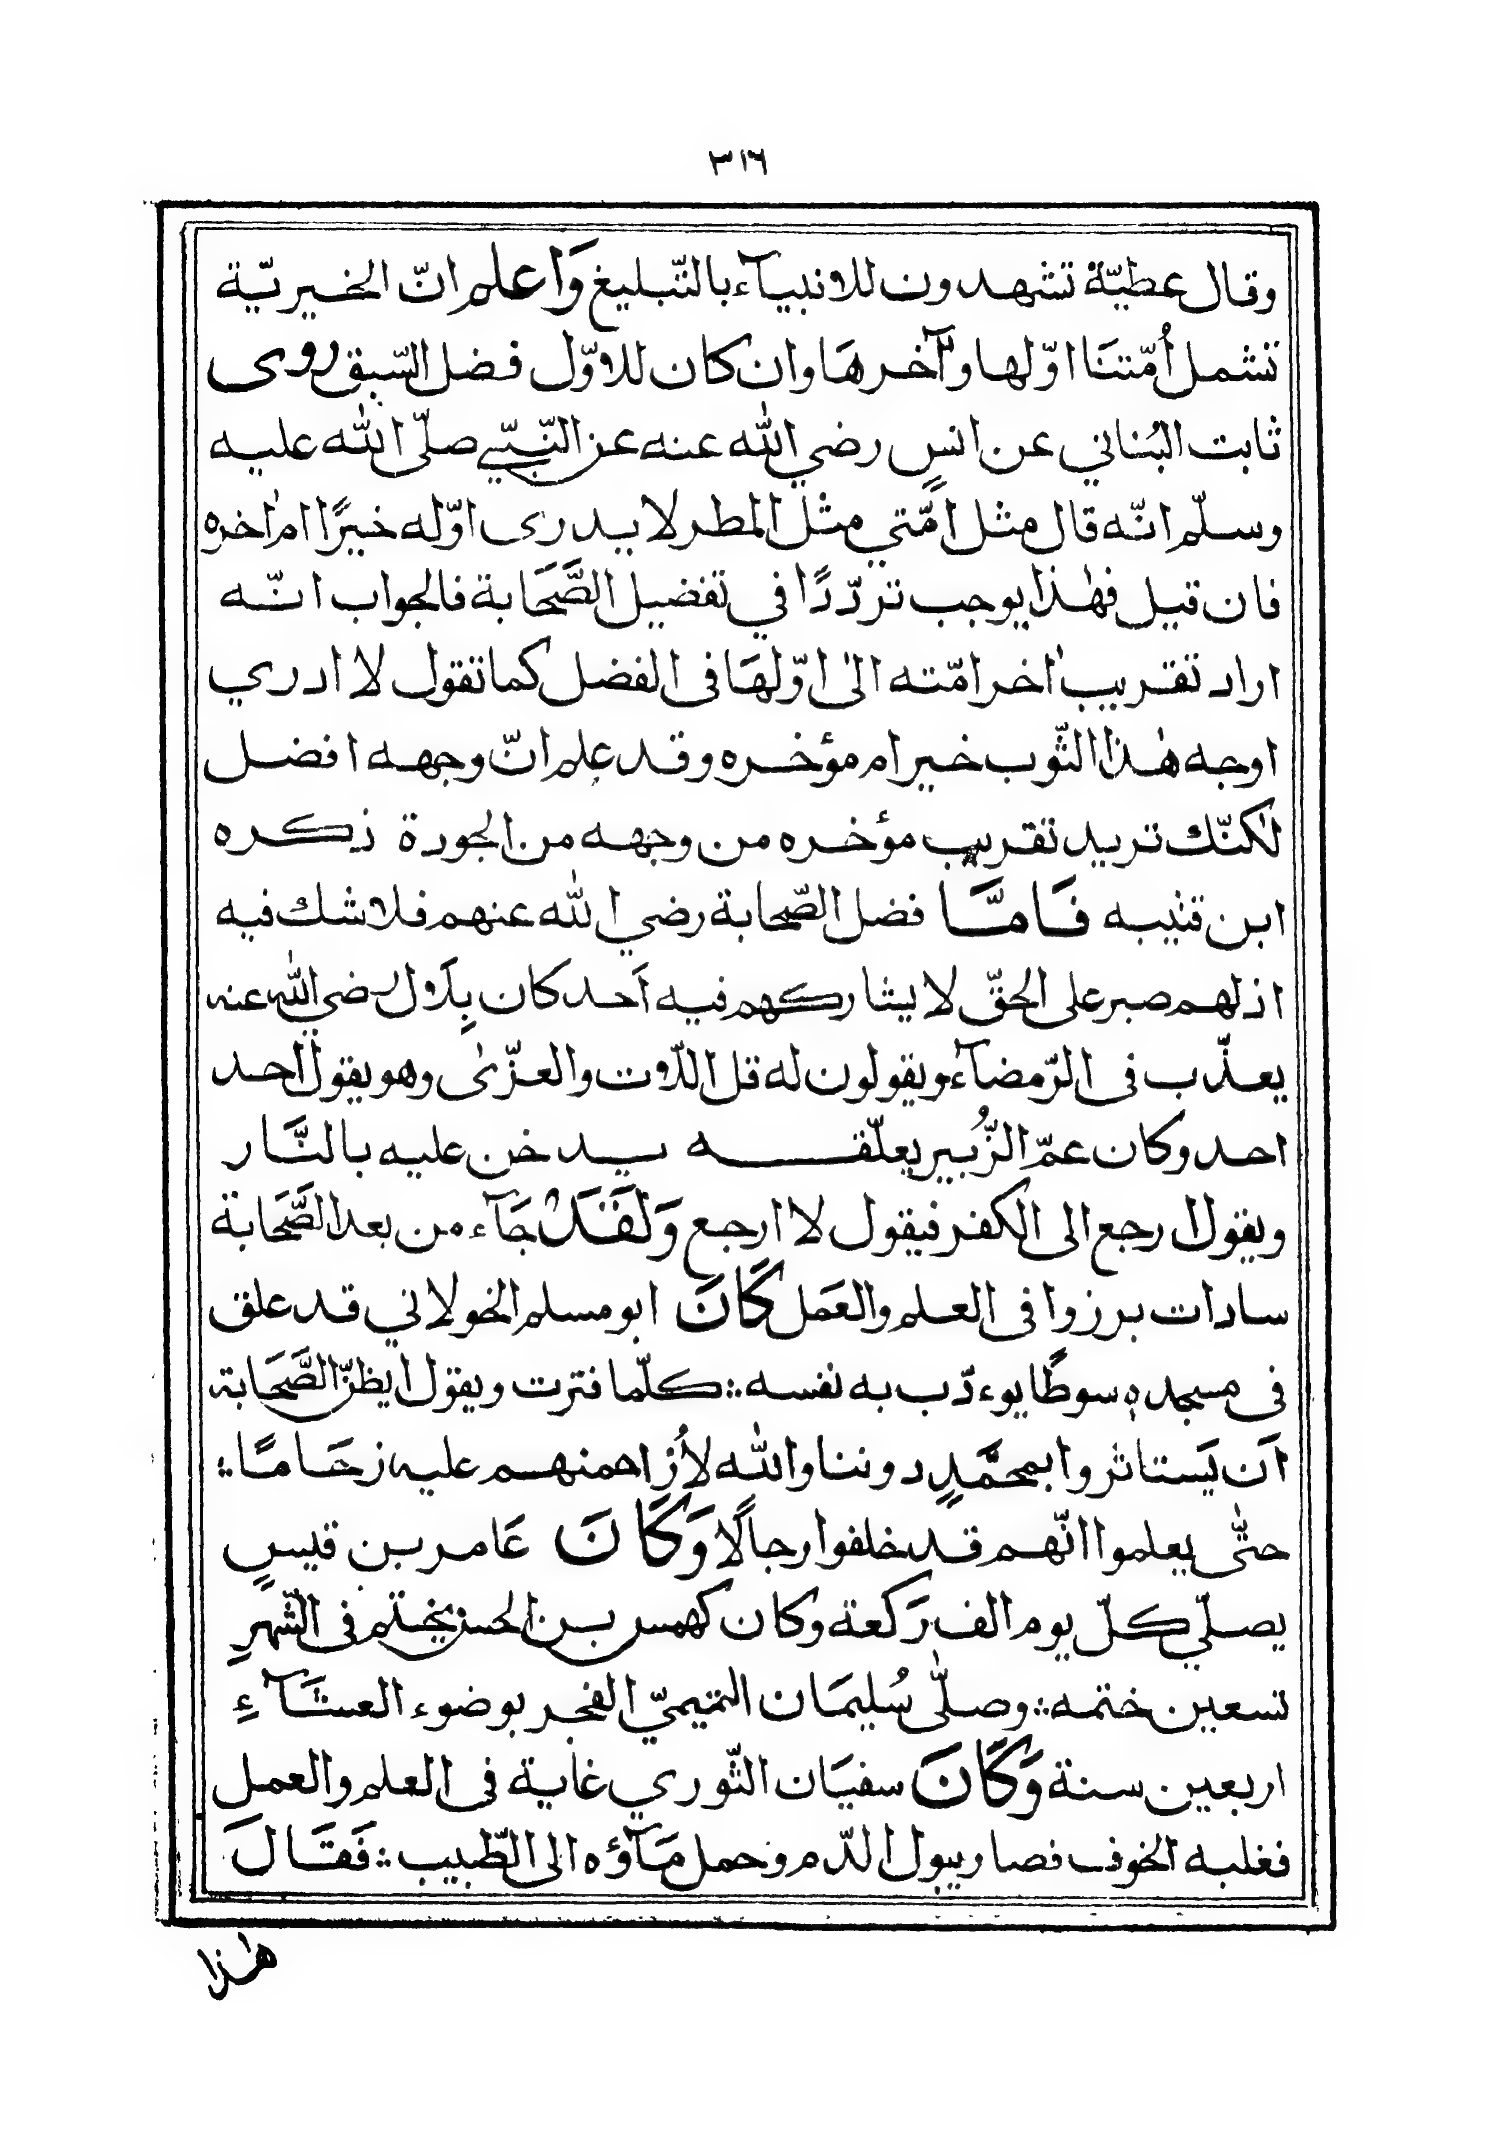 ٣١٦
وقال عطيّة تشهدون للانبيآء بالتّبليغ وَاعلم انّ الخيريّة
تشمل اُمّتنَا اوّلها وآخرهَا وان كان للاوّل فضل السّبق روى
ثابت البُناني عن انسٍ رضي الله عنه عن النّبيّ صلّى الله عليه
وسلّم انّه قال مثل امّتي مثل المطر لا يدرى اوّله خيرًا ام اٰخره
فان قيل فهٰذا يوجب تردّدًا في تفضيل الصَّحَابة فالجواب انّه
اراد تقريب اٰخر امّته الى اوّلهَا فى الفضل كما تقول لا ادري
اوجه هٰذا الثّوب خير ام مؤخره وقد علم انّ وجهه افضل
لٰكنّك تريد تقريب مؤخره من وجهه من الجودة ذكره
ابن قتيبه فَامَّا فضل الصّحابة رضي الله عنهم فلا شك فيه
اذ لهم صبر على الحقّ لا يشاركهم فيه اَحد كان بِلَال رضي الله عنه
يعذّب فى الرّمضآء ويقولون له قل اللّات والعزّىٰ وهو يقول احد
احد وكان عمّ الزُّبير يعلّقه يدخن عليه بالنَّار
ويقول ارجع الى الكفر فيقول لا ارجع وَلَقَدْ جَآء من بعد الصَّحَابة
سادات برزوا فى العلم والعَمَل كَانَ ابو مسلم الخولاني قد علق
فى مسجده سوطًا يوءدّب به نفسه ؞ كلّما فترت ويقول ايظنّ الصَّحَابة
اَن يَستاثروا بمحَمَّدٍ دوننا والله لاُزاحمنهم عليه زحَامًا ؞
حتّٰى يعلموا انّهم قد خلفوا رجالًا وَكَانَ عَامر بن قيسٍ
يصلّي كلّ يوم الف رَكعة وكان كهمس بن الحسن يختم فى الشّهرِ
تسعين ختمه ؞ وصلّٰى سُليمَان التيميّ الفجر بوضوء العشَآءِ
اربعين سنة وَكَانَ سفيَان الثّوري غاية فى العلم والعمل
فغلبه الخوف فصار يبول الدّم وحمل مَآؤه الى الطّبيب ؞ فَقَالَ
هٰذا